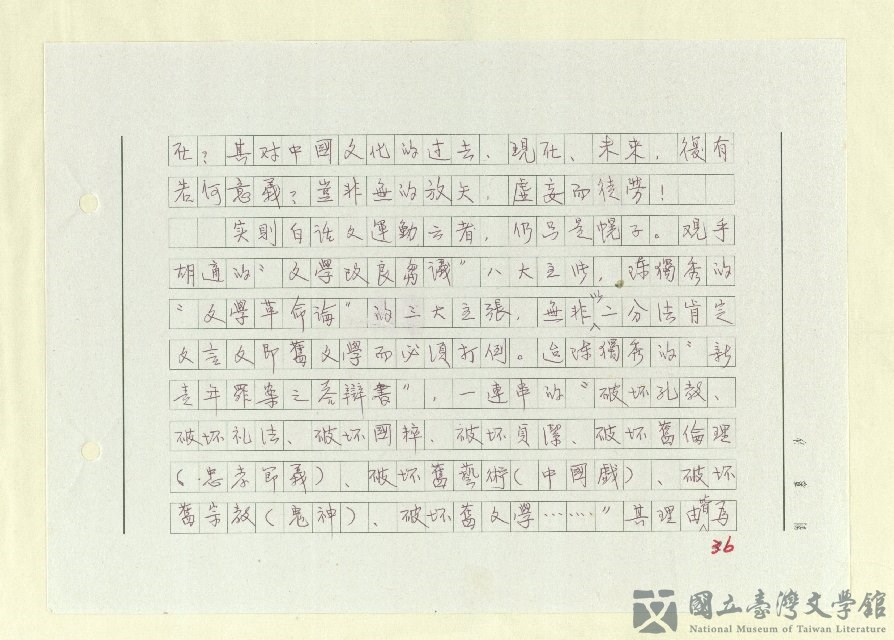 在？其对中國文化的过去、現在、未來，復有
若何意義？豈非無的放矢，虛妄而徒勞！
实則白话文運動云者，仍只是幌子。观乎
胡適的〝文學改良芻議〞八大主张，陳獨秀的
〝文學革命论〞的三大主張，無非以二分法肯定
文言文即舊文學而必須打倒。迨陳獨秀的〝新
青年罪案之荅辯書〞，一連串的〝破坏孔教、
破坏礼法、破坏國粹、破坏貞潔、破坏舊倫理
（忠孝節義）、破坏舊藝術（中國戲）、破坏
舊宗教（鬼神）、破坏舊文學……〞其理由皆再
36
國立臺灣文學館
National Museum of Taiwan Literature